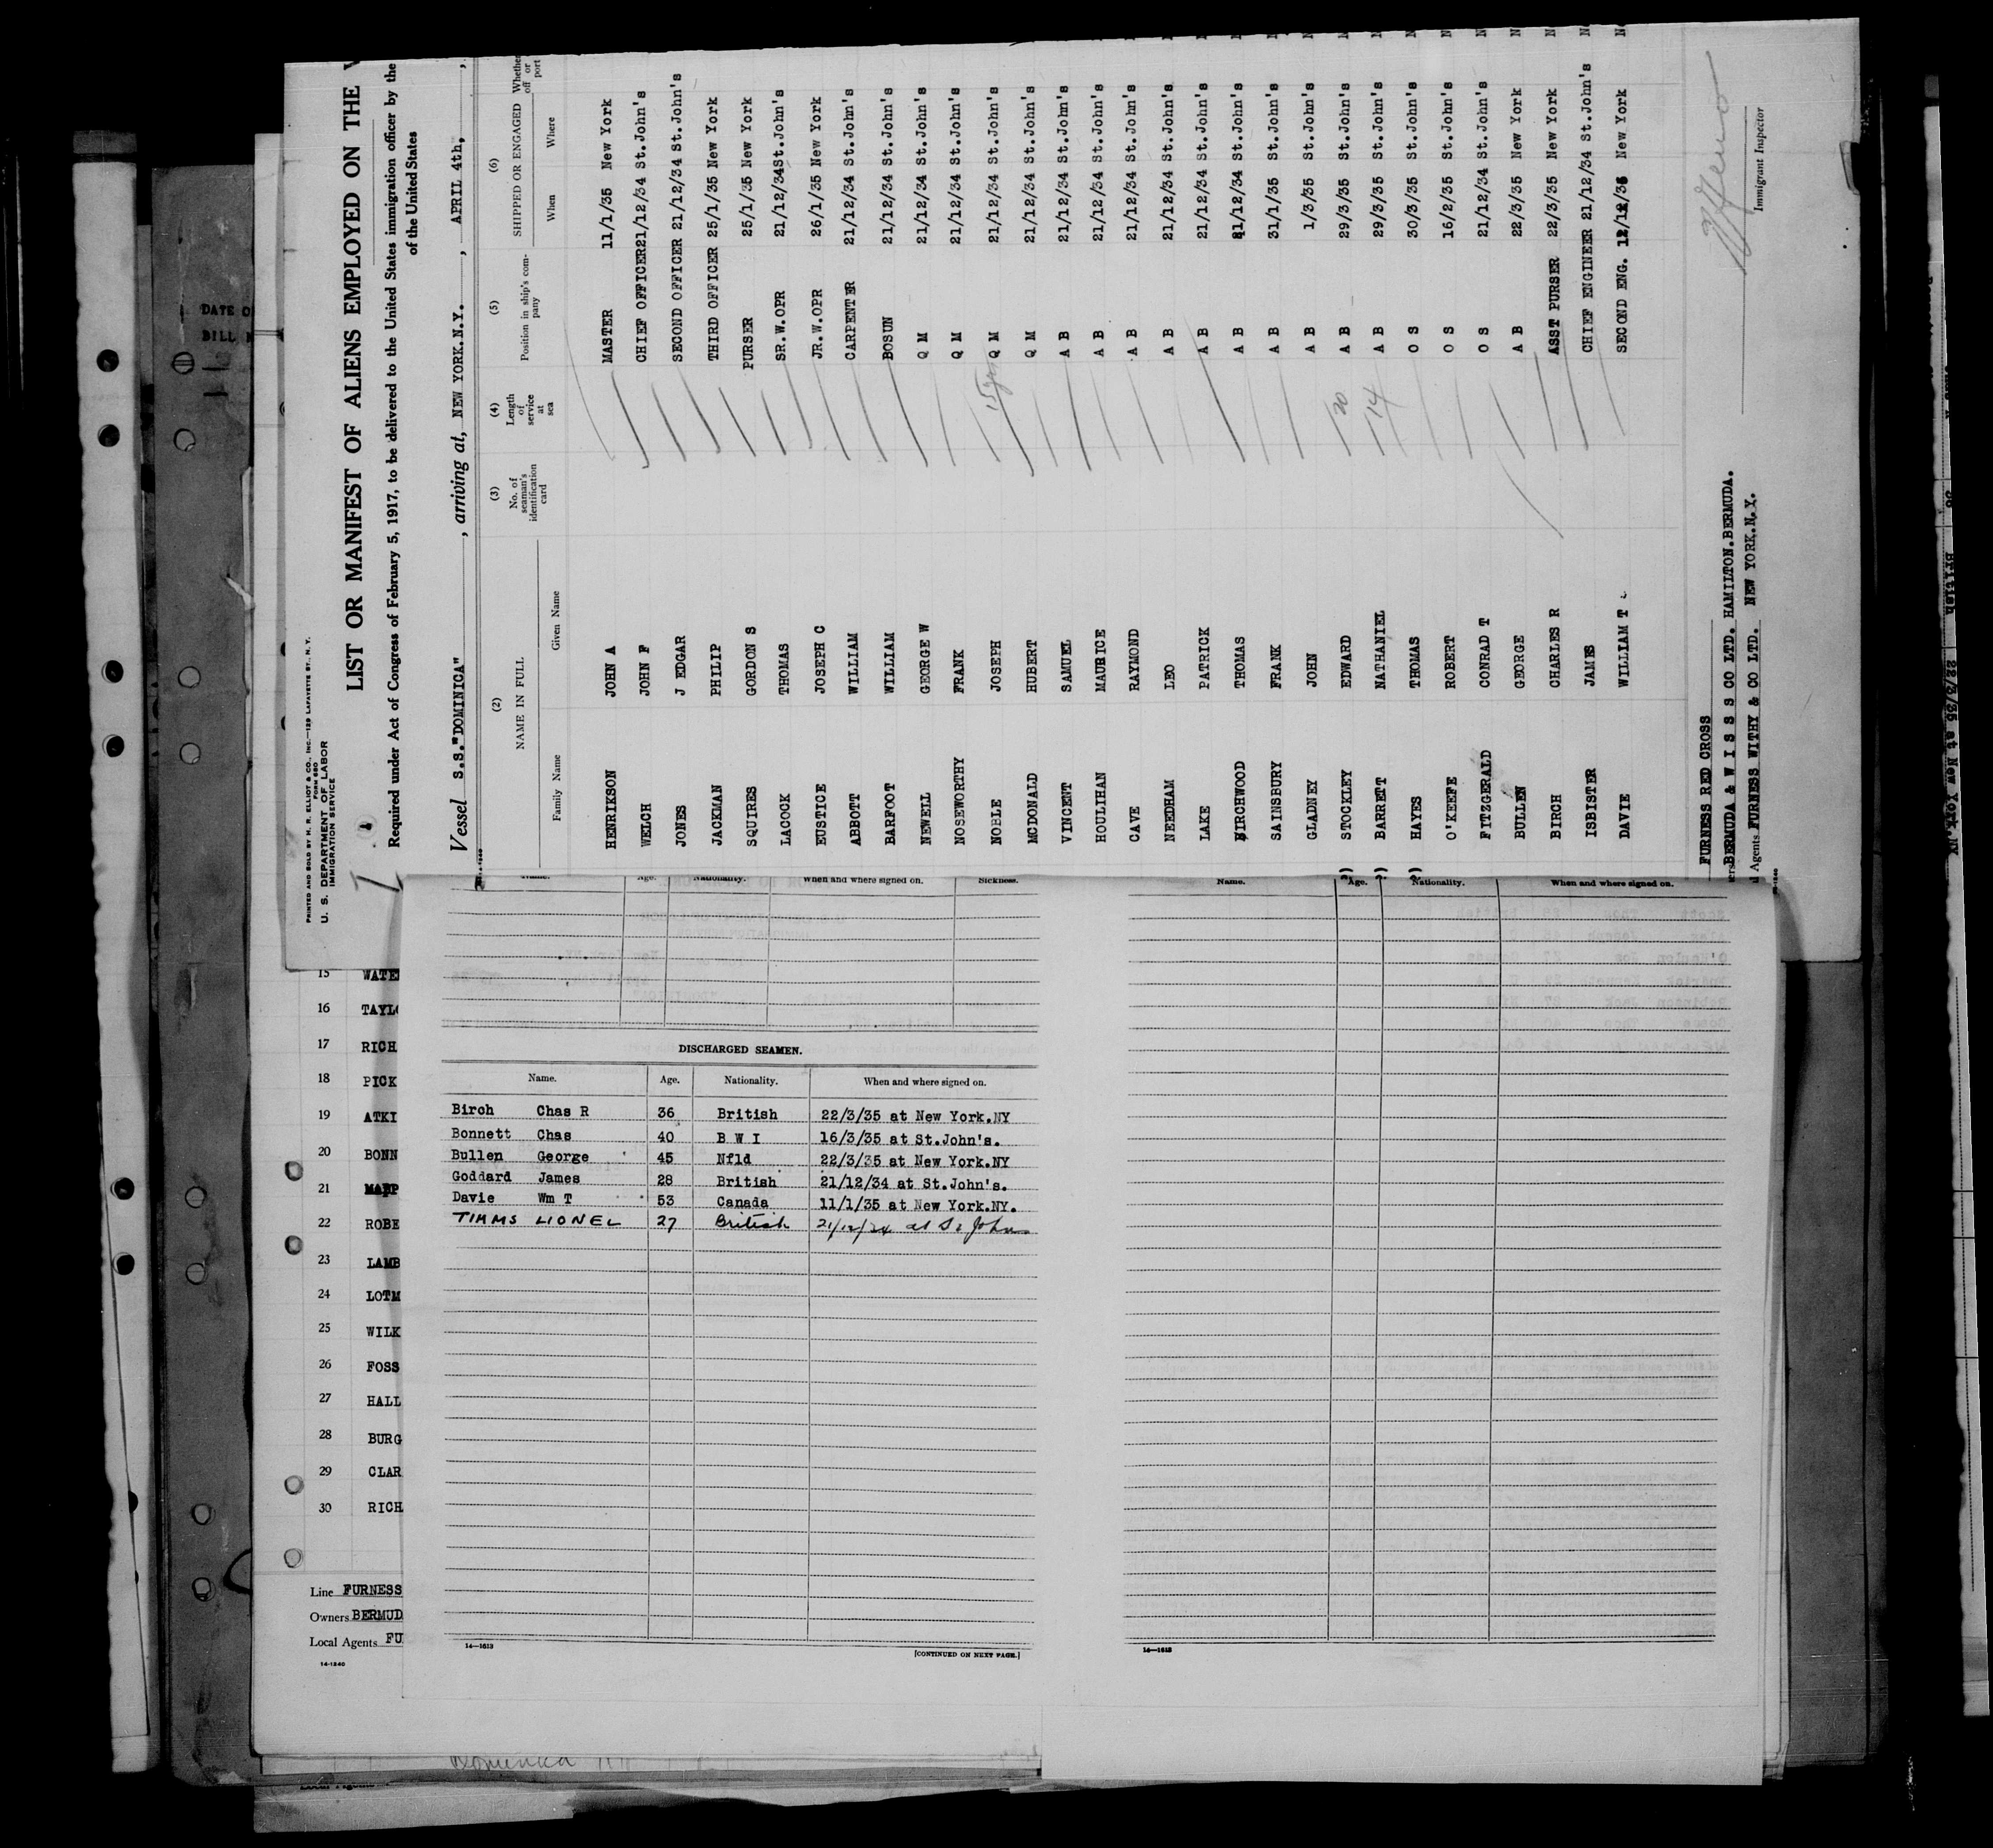 PRINTED AND SOLD BY H. R. ELLIOT & CO., INC.—129 LAFAYETTE ST., N. Y.
FORM 680
U. S. DEPARTMENT OF LABOR
IMMIGRATION SERVICE
LIST OR MANIFEST OF ALIENS EMPLOYED ON THE
Required under Act of Congress of February 5, 1917, to be delivered to the United States immigration officer by the
of the United States
Vessel S.S."DOMINICA", arriving at, NEW YORK.N.Y., APRIL 4th,
(2) (3) (4) (5) (6)
NAME IN FULL No. of seaman's identification card Length of service at sea Position in ship's company SHIPPED OR ENGAGED Whether off or port
Family Name Given Name When Where
HENRIKSON JOHN A MASTER 11/1/35 New York
WELCH JOHN F CHIEF OFFICER 21/12/34 St.John's
JONES J EDGAR SECOND OFFICER 21/12/34 St.John's
JACKMAN PHILIP THIRD OFFICER 25/1/35 New York
SQUIRES GORDON S PURSER 25/1/35 New York
LACOCK THOMAS SR.W.OPR 21/12/34 St.John's
EUSTICE JOSEPH C JR.W.OPR 26/1/35 New York
ABBOTT WILLIAM CARPENTER 21/12/34 St.John's
BARFOOT WILLIAM BOSUN 21/12/34 St.John's
NEWELL GEORGE W Q M 21/12/34 St.John's
NOSEWORTHY FRANK Q M 21/12/34 St.John's
NOBLE JOSEPH 15 Q M 21/12/34 St.John's
MCDONALD HUBERT Q M 21/12/34 St.John's
VINCENT SAMUEL A B 21/12/34 St.John's
HOULIHAN MAURICE A B 21/12/34 St.John's
CAVE RAYMOND A B 21/12/34 St.John's
NEEDHAM LEO A B 21/12/34 St.John's
LAKE PATRICK A B 21/12/34 St.John's
BIRCHWOOD THOMAS A B 21/12/34 St.John's
SAINSBURY FRANK A B 31/1/35 St.John's
GLADNEY JOHN A B 1/3/35 St.John's
STOCKLEY EDWARD 20 A B 29/3/35 St.John's
BARRETT NATHANIEL 14 A B 29/3/35 St.John's
HAYES THOMAS O S 30/3/35 St.John's
O'KEEFE ROBERT O S 16/2/35 St.John's
FITZGERALD CONRAD T O S 21/12/34 St.John's
BULLEN GEORGE A B 22/3/35 New York
BIRCH CHARLES R ASST PURSER 22/3/35 New York
ISBISTER JAMES CHIEF ENGINEER 21/12/34 St.John's
DAVIE WILLIAM T SECOND ENG. New York
FURNESS RED CROSS
BERMUDA & W I S S CO LTD. HAMILTON.BERMUDA.
Agents FURNESS WITHY & CO LTD. NEW YORK.N.Y.
Immigrant Inspector
DATE O
BILL
15 WATE
16 TAYLO
17 RICH
18 PICK
19 ATKI
20 BONN
21
22 ROBE
23 LAMB
24 LOTM
25 WILK
26 FOSS
27 HALL
28 BURG
29 CLAR
30 RICH
Line FURNESS
Owners BERMUD
Local Agents FU
14-1240
Name. Age. Nationality. When and where signed on. Sickness.
DISCHARGED SEAMEN.
Name. Age. Nationality. When and where signed on.
Birch Chas R 36 British 22/3/35 at New York.NY
Bonnett Chas 40 B W I 16/3/35 at St.John's.
Bullen George 45 Nfld 22/3/35 at New York.NY
Goddard James 28 British 21/12/34 at St.John's.
Davie Wm T 53 Canada 11/1/35 at New York.NY.
TIMMS LIONEL 27 British 21/12/34 at St John
14—1613
[CONTINUED ON NEXT PAGE.]
Name. Age. Nationality. When and where signed on.
14—1613
British 22/3/35 at New York.NY
Dominica